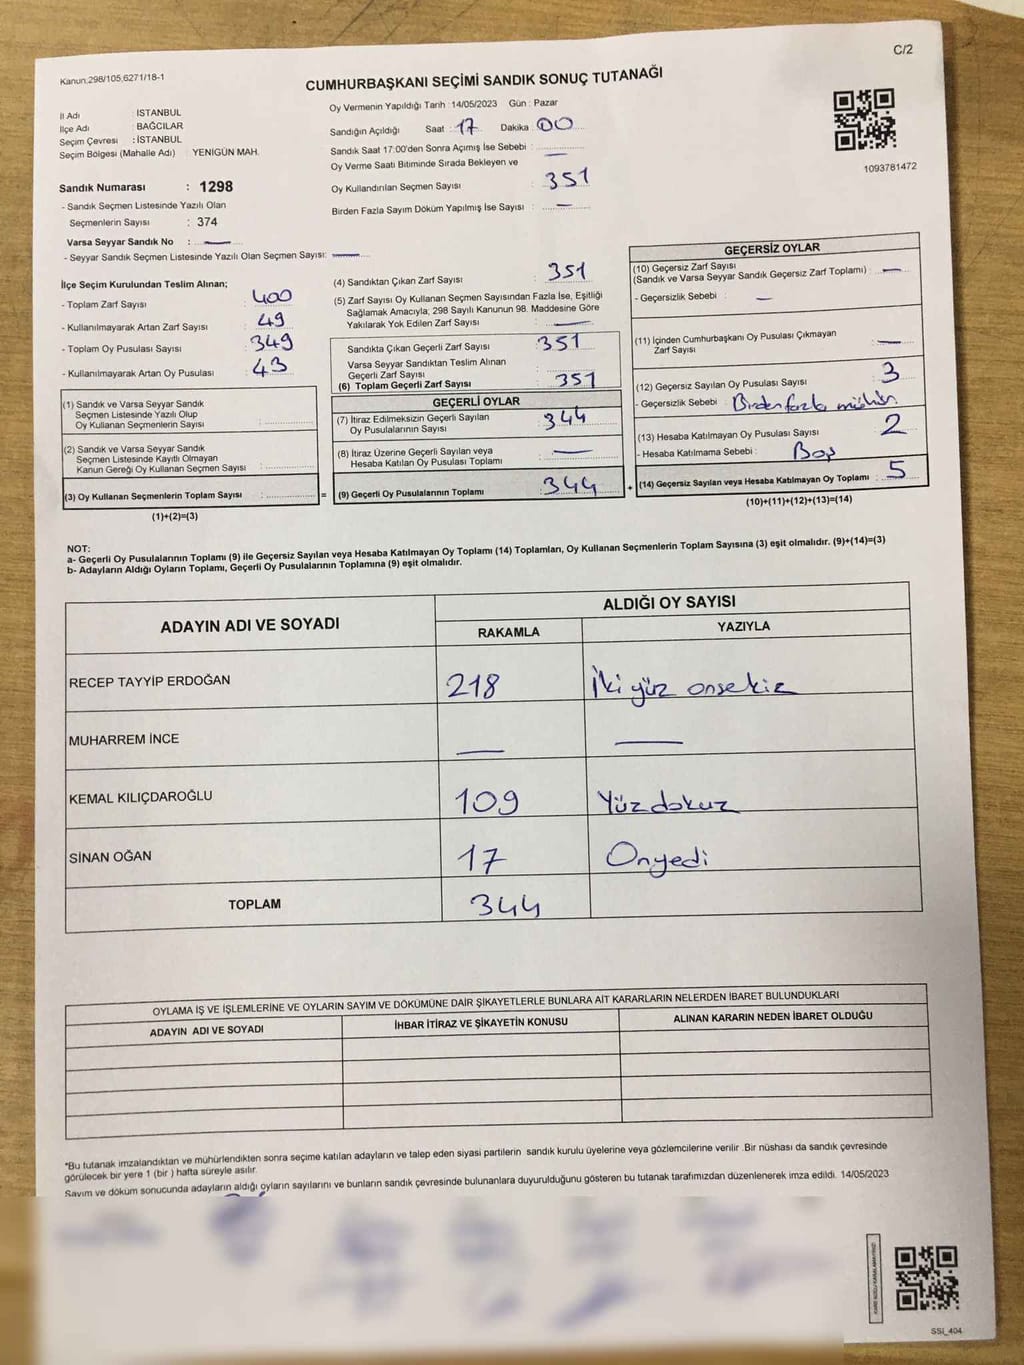 C/2
Kanun:298/105,6271/18-1
CUMHURBAŞKANI SEÇİMİ SANDIK SONUÇ TUTANAĞI
İl Adı : İSTANBUL
İlçe Adı : BAĞCILAR
Seçim Çevresi : İSTANBUL
Seçim Bölgesi (Mahalle Adı) : YENİGÜN MAH.
Oy Vermenin Yapıldığı Tarih : 14/05/2023 Gün : Pazar
Sandığın Açıldığı Saat : 17 Dakika : 00
Sandık Saat 17:00'den Sonra Açımış İse Sebebi : —
Oy Verme Saati Bitiminde Sırada Bekleyen ve
Oy Kullandırılan Seçmen Sayısı : 351
Birden Fazla Sayım Döküm Yapılmış İse Sayısı : —
1093781472
Sandık Numarası : 1298
- Sandık Seçmen Listesinde Yazılı Olan
Seçmenlerin Sayısı : 374
Varsa Seyyar Sandık No : —
- Seyyar Sandık Seçmen Listesinde Yazılı Olan Seçmen Sayısı: —
İlçe Seçim Kurulundan Teslim Alınan;
- Toplam Zarf Sayısı : 400
- Kullanılmayarak Artan Zarf Sayısı : 49
- Toplam Oy Pusulası Sayısı : 349
- Kullanılmayarak Artan Oy Pusulası : 43
(1) Sandık ve Varsa Seyyar Sandık
Seçmen Listesinde Yazılı Olup
Oy Kullanan Seçmenlerin Sayısı :
(2) Sandık ve Varsa Seyyar Sandık
Seçmen Listesinde Kayıtlı Olmayan
Kanun Gereği Oy Kullanan Seçmen Sayısı :
(3) Oy Kullanan Seçmenlerin Toplam Sayısı : =
(1)+(2)=(3)
(4) Sandıktan Çıkan Zarf Sayısı : 351
(5) Zarf Sayısı Oy Kullanan Seçmen Sayısından Fazla İse, Eşitliği
Sağlamak Amacıyla; 298 Sayılı Kanunun 98. Maddesine Göre
Yakılarak Yok Edilen Zarf Sayısı : —
Sandıkta Çıkan Geçerli Zarf Sayısı : 351
Varsa Seyyar Sandıktan Teslim Alınan
Geçerli Zarf Sayısı :
(6) Toplam Geçerli Zarf Sayısı : 351
GEÇERLİ OYLAR
(7) İtiraz Edilmeksizin Geçerli Sayılan
Oy Pusulalarının Sayısı : 344
(8) İtiraz Üzerine Geçerli Sayılan veya
Hesaba Katılan Oy Pusulası Toplamı : —
(9) Geçerli Oy Pusulalarının Toplamı : 344 +
GEÇERSİZ OYLAR
(10) Geçersiz Zarf Sayısı
(Sandık ve Varsa Seyyar Sandık Geçersiz Zarf Toplamı) : —
- Geçersizlik Sebebi : —
(11) İçinden Cumhurbaşkanı Oy Pusulası Çıkmayan
Zarf Sayısı : —
(12) Geçersiz Sayılan Oy Pusulası Sayısı : 3
- Geçersizlik Sebebi : Birden fazla mühür
(13) Hesaba Katılmayan Oy Pusulası Sayısı : 2
- Hesaba Katılmama Sebebi : Boş
(14) Geçersiz Sayılan veya Hesaba Katılmayan Oy Toplamı : 5
(10)+(11)+(12)+(13)=(14)
NOT:
a- Geçerli Oy Pusulalarının Toplamı (9) ile Geçersiz Sayılan veya Hesaba Katılmayan Oy Toplamı (14) Toplamları, Oy Kullanan Seçmenlerin Toplam Sayısına (3) eşit olmalıdır. (9)+(14)=(3)
b- Adayların Aldığı Oyların Toplamı, Geçerli Oy Pusulalarının Toplamına (9) eşit olmalıdır.
ADAYIN ADI VE SOYADI
ALDIĞI OY SAYISI
RAKAMLA YAZIYLA
RECEP TAYYİP ERDOĞAN 218 İki yüz onsekiz
MUHARREM İNCE — —
KEMAL KILIÇDAROĞLU 109 Yüzdokuz
SİNAN OĞAN 17 Onyedi
TOPLAM 344
OYLAMA İŞ VE İŞLEMLERİNE VE OYLARIN SAYIM VE DÖKÜMÜNE DAİR ŞİKAYETLERLE BUNLARA AİT KARARLARIN NELERDEN İBARET BULUNDUKLARI
ADAYIN ADI VE SOYADI İHBAR İTİRAZ VE ŞİKAYETİN KONUSU ALINAN KARARIN NEDEN İBARET OLDUĞU
*Bu tutanak imzalandıktan ve mühürlendikten sonra seçime katılan adayların ve talep eden siyasi partilerin sandık kurulu üyelerine veya gözlemcilerine verilir .Bir nüshası da sandık çevresinde
görülecek bir yere 1 (bir ) hafta süreyle asılır.
Sayım ve döküm sonucunda adayların aldığı oyların sayılarını ve bunların sandık çevresinde bulunanlara duyurulduğunu gösteren bu tutanak tarafımızdan düzenlenerek imza edildi. 14/05/2023
SSİ_404